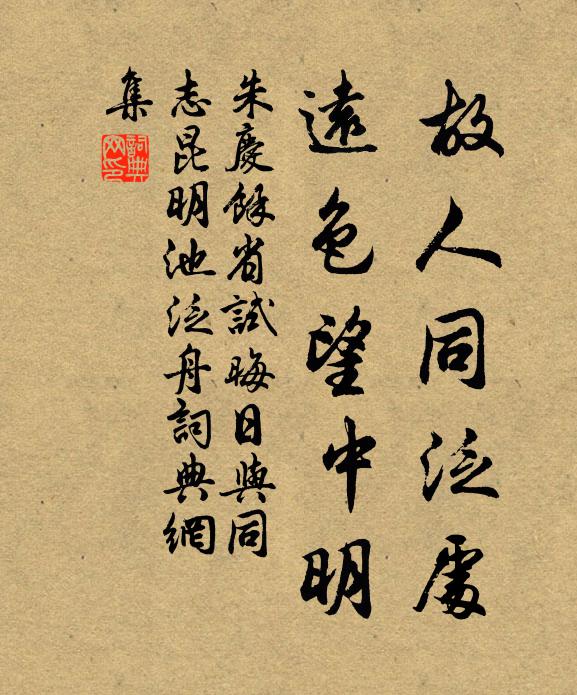 故人同泛處
遠色望中明
朱慶餘省試晦日與同
志昆明池泛舟詞典網
集
詞典網印